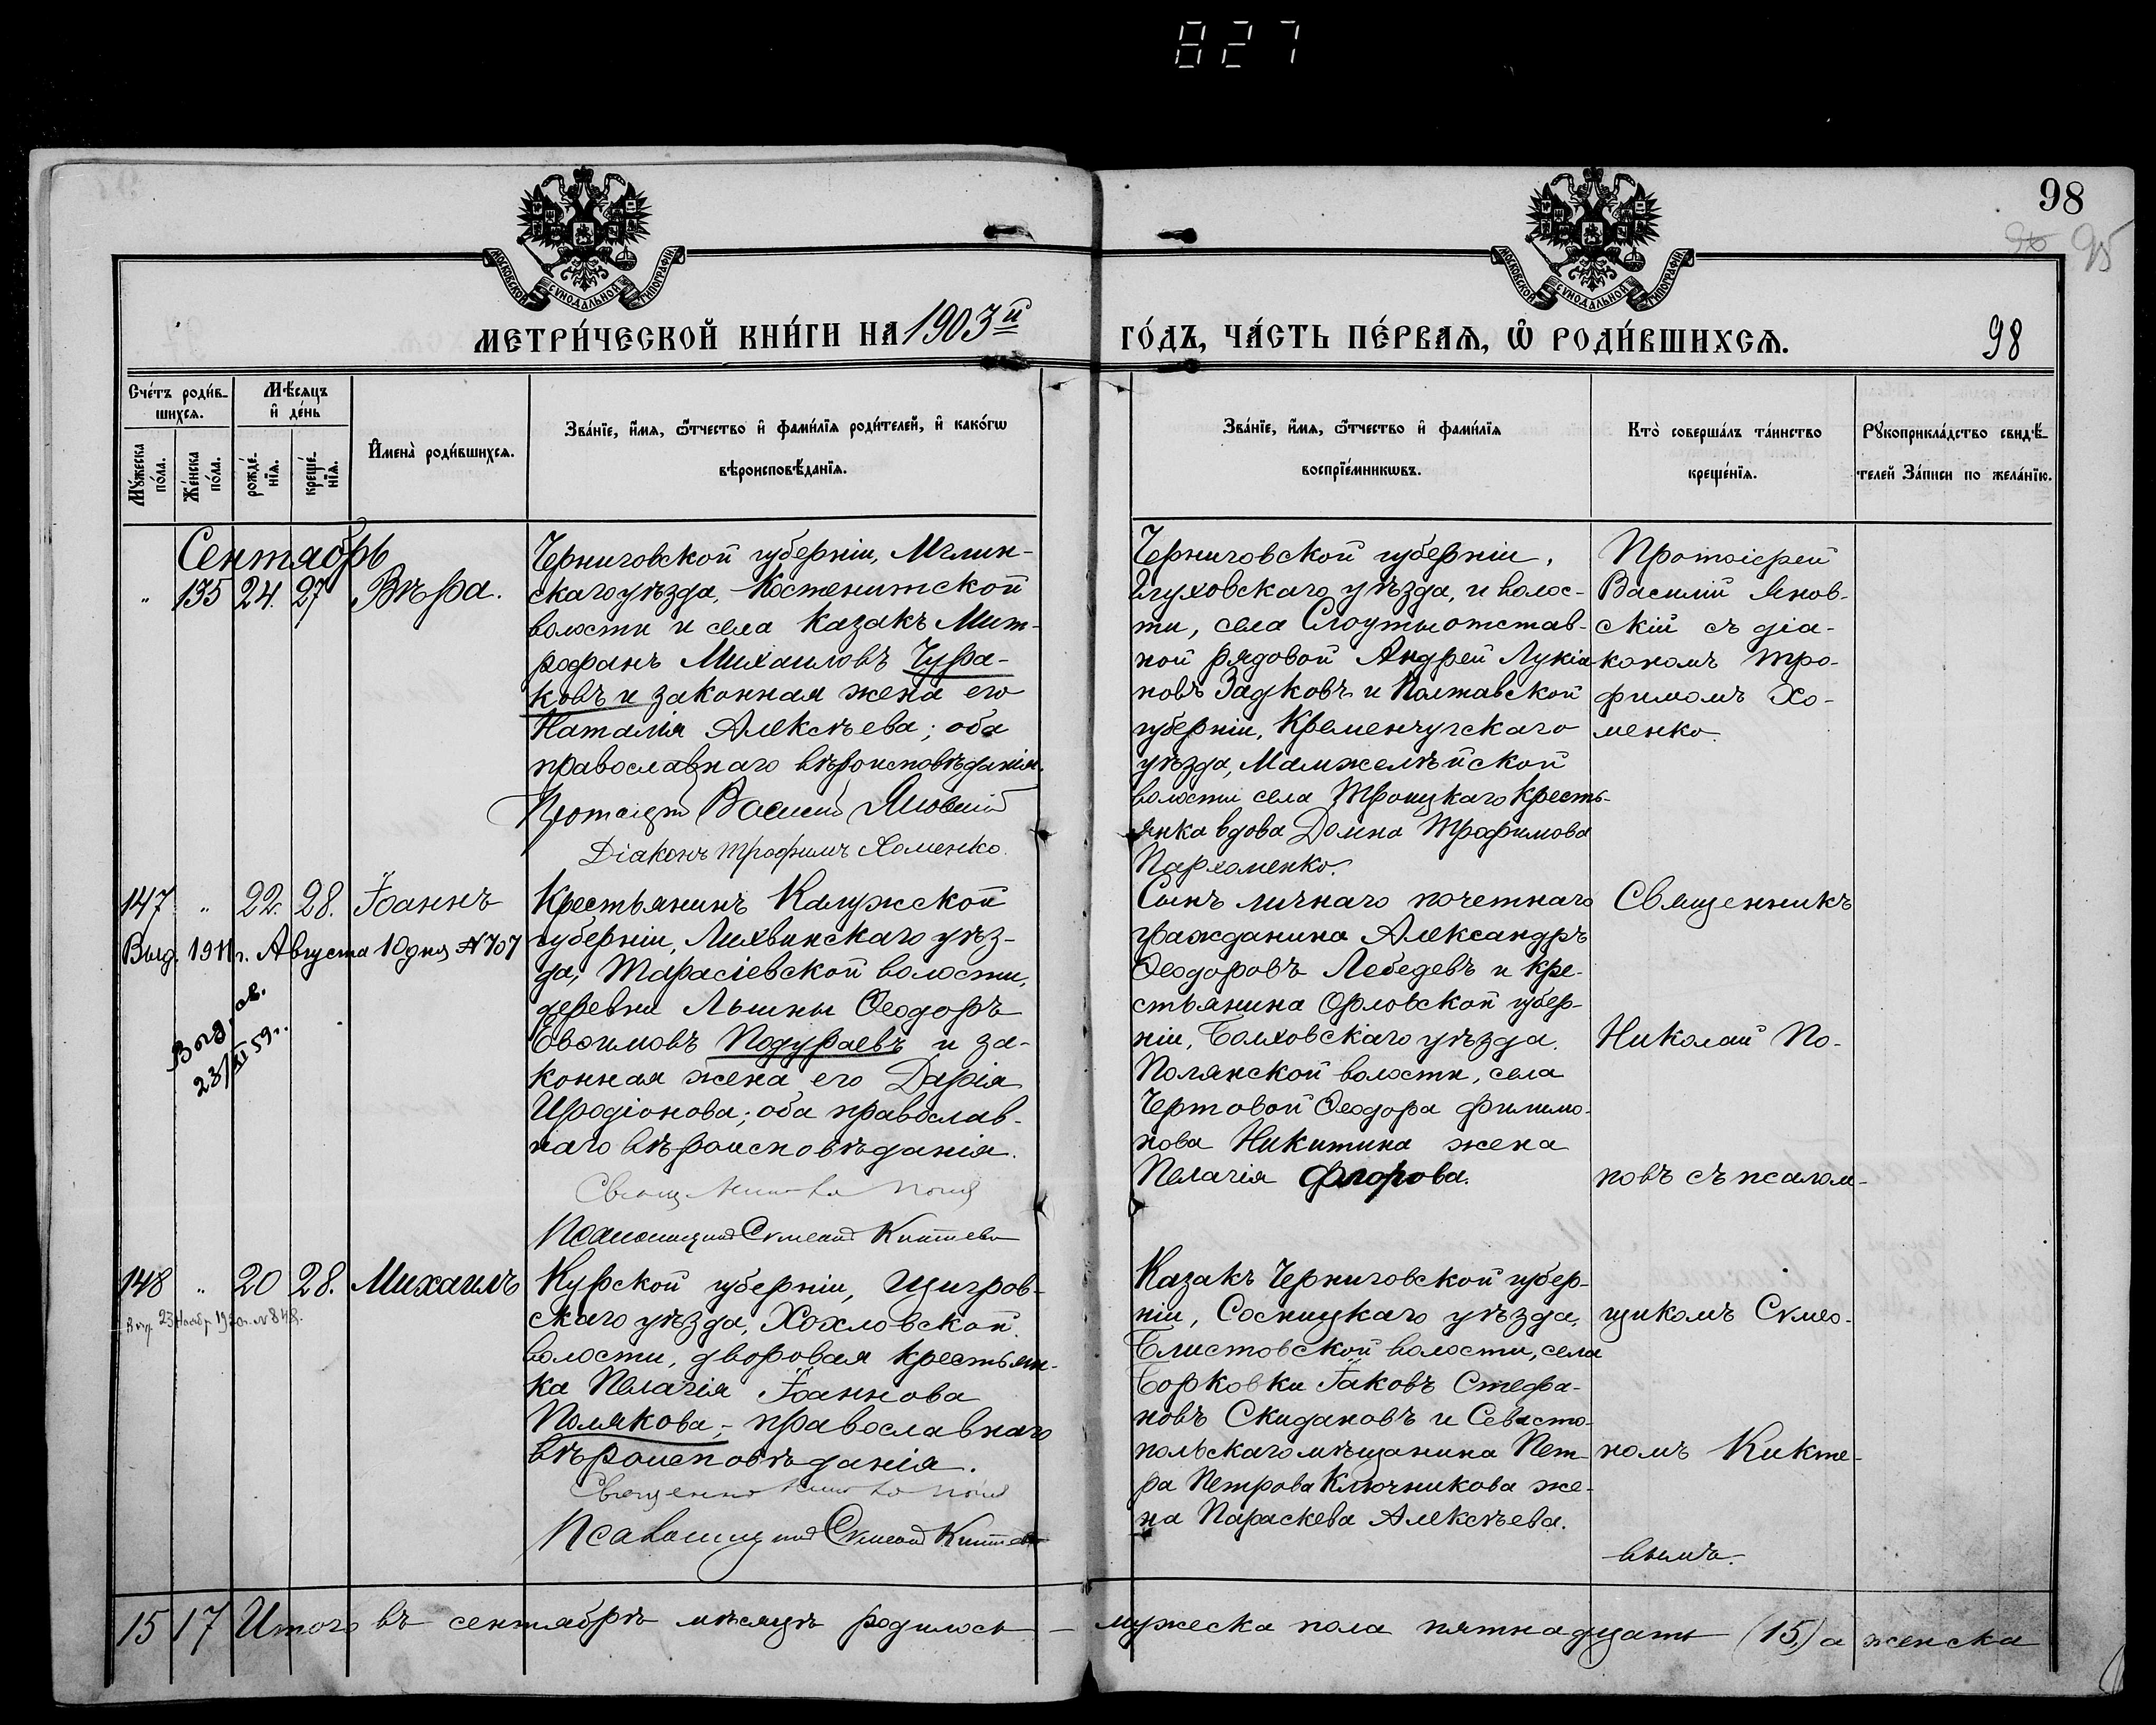 827
98
95
МОСКОВСКОЙ СѴНОДАЛЬНОЙ ТИПОГРАФІИ
МОСКОВСКОЙ СѴНОДАЛЬНОЙ ТИПОГРАФІИ
МЕТРИ́ЧЕСКОЙ КНИ́ГИ НА 1903й
ГО́ДЪ, ЧА́СТЬ ПЕ́РВАѦ, Ѽ РОДИ́ВШИХСѦ.
98
Сче́тъ роди́в-
шихсѧ.
Мꙋ́жеска по́ла.
Же́нска по́ла.
Мѣ́сѧцъ
и҆ де́нь
рожде́нїѧ.
креще́нїѧ.
И҆мена̀ роди́вшихсѧ.
Зва́нїе, и҆́мѧ, ѻ҆́тчество и҆ фами́лїѧ роди́телей, и҆ како́гѡ
вѣроисповѣ́данїѧ.
Зва́нїе, и҆́мѧ, ѻ҆́тчество и҆ фами́лїѧ
воспрїе́мникѡвъ.
Кто̀ соверша́лъ та́инство
креще́нїѧ.
Рꙋкоприкла́дство свидѣ́-
телей За́писи по жела́нїю.
Сентябрь
" 135 24. 27 Вѣра.
Черниговской губерніи, Мглин-
скаго уѣзда, Костеничской
волости и села казакъ Мит-
рофанъ Михаиловъ Чура-
ковъ и законная жена его
Наталія Алексѣева; оба
православнаго вѣроисповѣданія.
Протоіерей Василій Яновскій
Діаконъ Трофимъ Хоменко.
Черниговской губерніи,
Глуховскаго уѣзда, и волос-
ти, села Слоуты отстав-
ной рядовой Андрей Лукіа-
новъ Задковъ и Полтавской
губерніи, Кременчугскаго
уѣзда, Мамжелѣйской
волости села Троицкаго кресть-
янка вдова Домна Трофимова
Пархоменко.
Протоіерей
Василій Янов-
скій съ діа-
кономъ Тро-
фимомъ Хо-
менко.
147 " 22. 28. Іоаннъ
Выд. 1911 г. Августа 10 дня № 707
Выд. св.
23/XI 59 г.
Крестьянинъ Калужской
губерніи, Лихвинскаго уѣз-
да, Тарасіевской волости,
деревни Льшны Ѳеодоръ
Евѳимовъ Подураевъ и за-
конная жена его Дарія
Иродіонова; оба православ-
наго вѣроисповѣданія.
Псаломщикъ Сѵмеонъ Киктевъ
Сынъ личнаго почетнаго
гражданина Александръ
Ѳеодоровъ Лебедевъ и кре-
стьянина Орловской губер-
ніи, Болховскаго уѣзда,
Полянской волости, села
Чертовой Ѳеодора Филимо-
нова Никитина жена
Пелагія Флорова.
Священникъ
Николай По-
повъ съ псалом-
148 " 20 28. Михаилъ
Выд. 23 Ноябр. 1920 г. № 848.
Курской губерніи, Щигров-
скаго уѣзда, Хохловской
волости, дворовая крестьян-
ка Пелагія Іоаннова
Полякова; - православнаго
вѣроисповѣданія.
Псаломщикъ Сѵмеонъ Киктевъ
Казакъ Черниговской губер-
ніи, Сосницкаго уѣзда,
Блистовской волости, села
Борковки Іаковъ Стефа-
новъ Скидановъ и Севасто-
польскаго мѣщанина Пет-
ра Петрова Ключникова же-
на Параскева Алексѣева.
щикомъ Сѵмео-
номъ Кикте-
вымъ.
15 17 Итого въ сентябрѣ мѣсяцѣ родилось - мужеска пола пятнадцать (15,) а женска